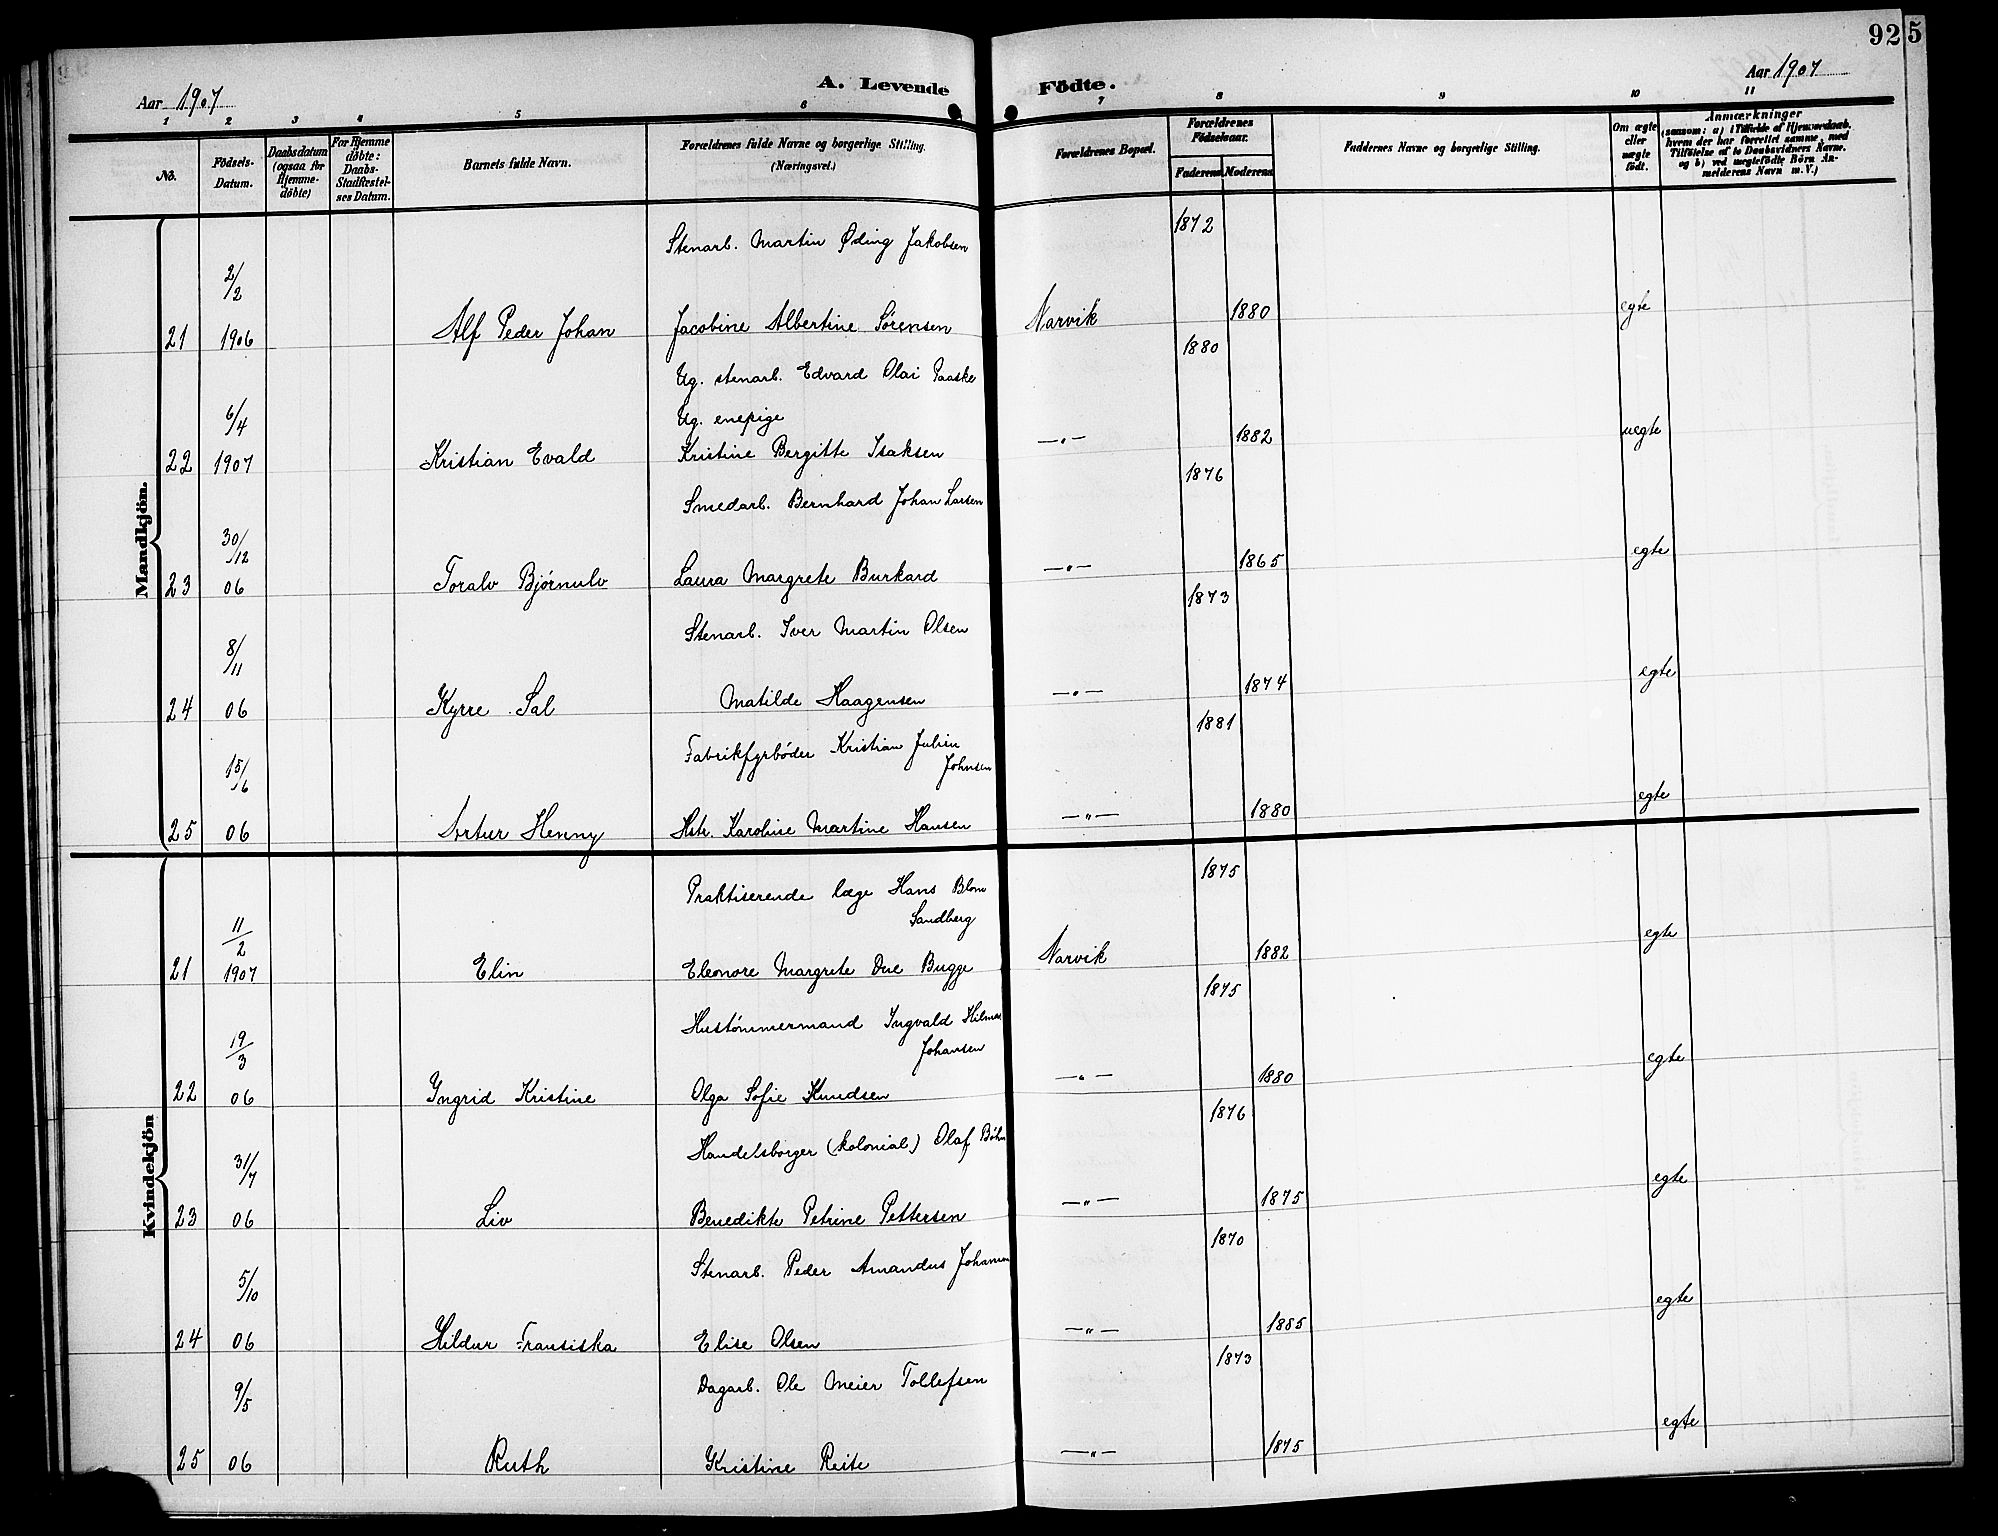 925
Aar 1907
A. Levende Födte.
Aar 1907
1 2 3 4 5 6 7 8 9 10 11
No.
Födsels-Datum.
Daabsdatum (ogsaa for Hjemme-döbte)
For Hjemme döbte: Daabs-Stadfæstel-ses Datum.
Barnets fulde Navn.
Forældrenes fulde Navne og borgerlige Stilling. (Næringsvei.)
Forældrenes Bopæl.
Forældrenes Födselsaar.
Faderens. Moderens.
Faddernes Navne og borgerlige Stilling.
Om ægte eller uægte födt.
Anmærkninger
(saasom: a) i Tilfælde af Hjemmedaab, hvem der har forrettet samme, med Tilföielse af to Daabsvidners Navne. og b) ved uegtefödte Börn Anmelderens Navn m. V.)
Mandkjön.
Stenarb. Martin Øding Jakobsen 1872
21 2/2 1906 Alf Peder Johan Jacobine Albertine Sørensen Narvik 1880 egte
Ug. stenarb. Edvard Olai Paaske 1880
Ug. enepige
22 6/4 1907 Kristian Evald Kristine Bergitte Isaksen —"— 1882 uegte
Smedarb. Bernhard Johan Larsen 1876
23 30/12 06 Toralv Bjørnulv Laura Margrete Burkard —"— 1865 egte
Stenarb. Iver Martin Olsen 1873
24 8/11 06 Kyrre Sal Matilde Haagensen —"— 1874 egte
Fabrikfyrbøder Kristian Julius Johnsen 1881
25 15/6 06 Artur Henny Hstr. Karoline Martine Hansen —"— 1880 egte
Kvindekjön
Praktiserende læge Hans Blom Sandberg 1875
21 11/2 1907 Elin Eleonore Margrete Due Bugge Narvik 1882 egte
Hustømmermand Ingvald Hilmar Johansen 1875
22 19/3 06 Yngrid Kristine Olga Sofie Knudsen —"— 1880 egte
Handelsborger (kolonial) Olaf Bøhn 1876
23 31/7 06 Liv Benedikte Petrine Pettersen —"— 1875 egte
Stenarb. Peder Amandus Johansen 1870
24 5/10 06 Hildur Fransiska Elise Olsen —"— 1885 egte
Dagarb. Ole Meier Tollefsen 1873
25 9/5 06 Ruth Kristine Reite —"— 1875 egte